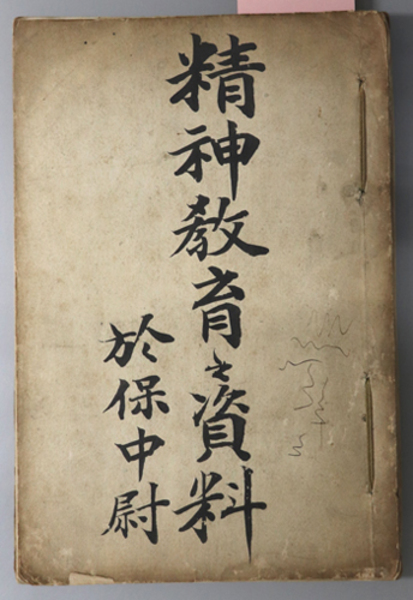 精神教育之資料
於保中尉